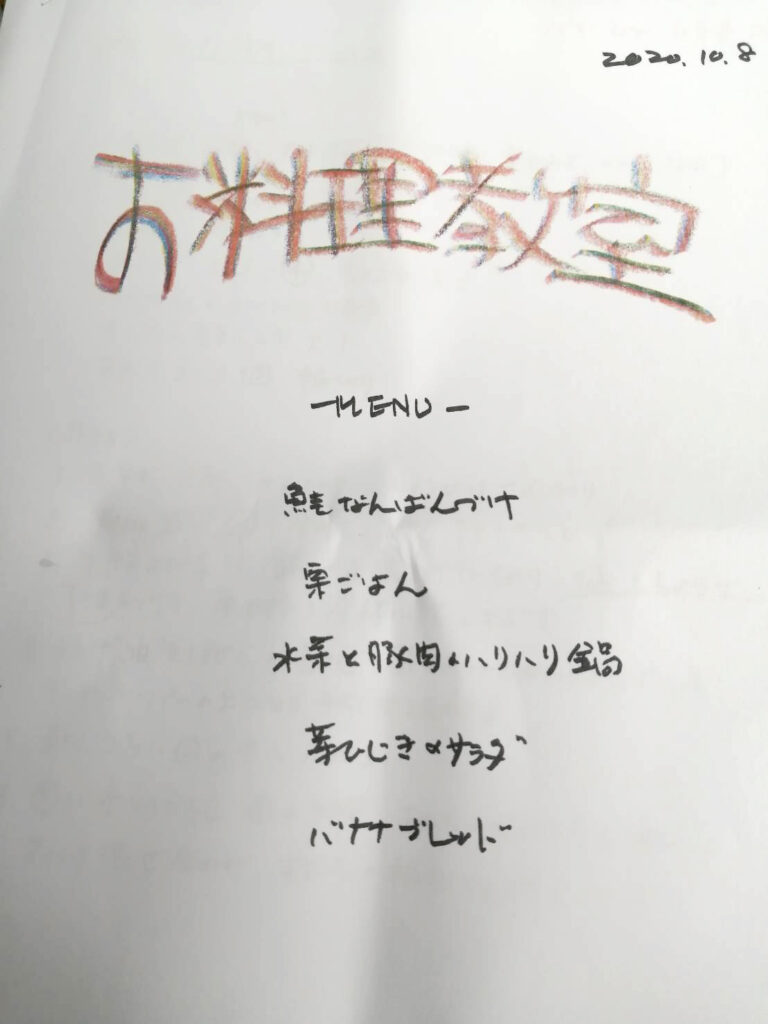 2020.10.8
お料理教室
-MENU-
鮭なんばんづけ
栗ごはん
水菜と豚肉のハリハリ鍋
芽ひじきのサラダ
バナナブレッド